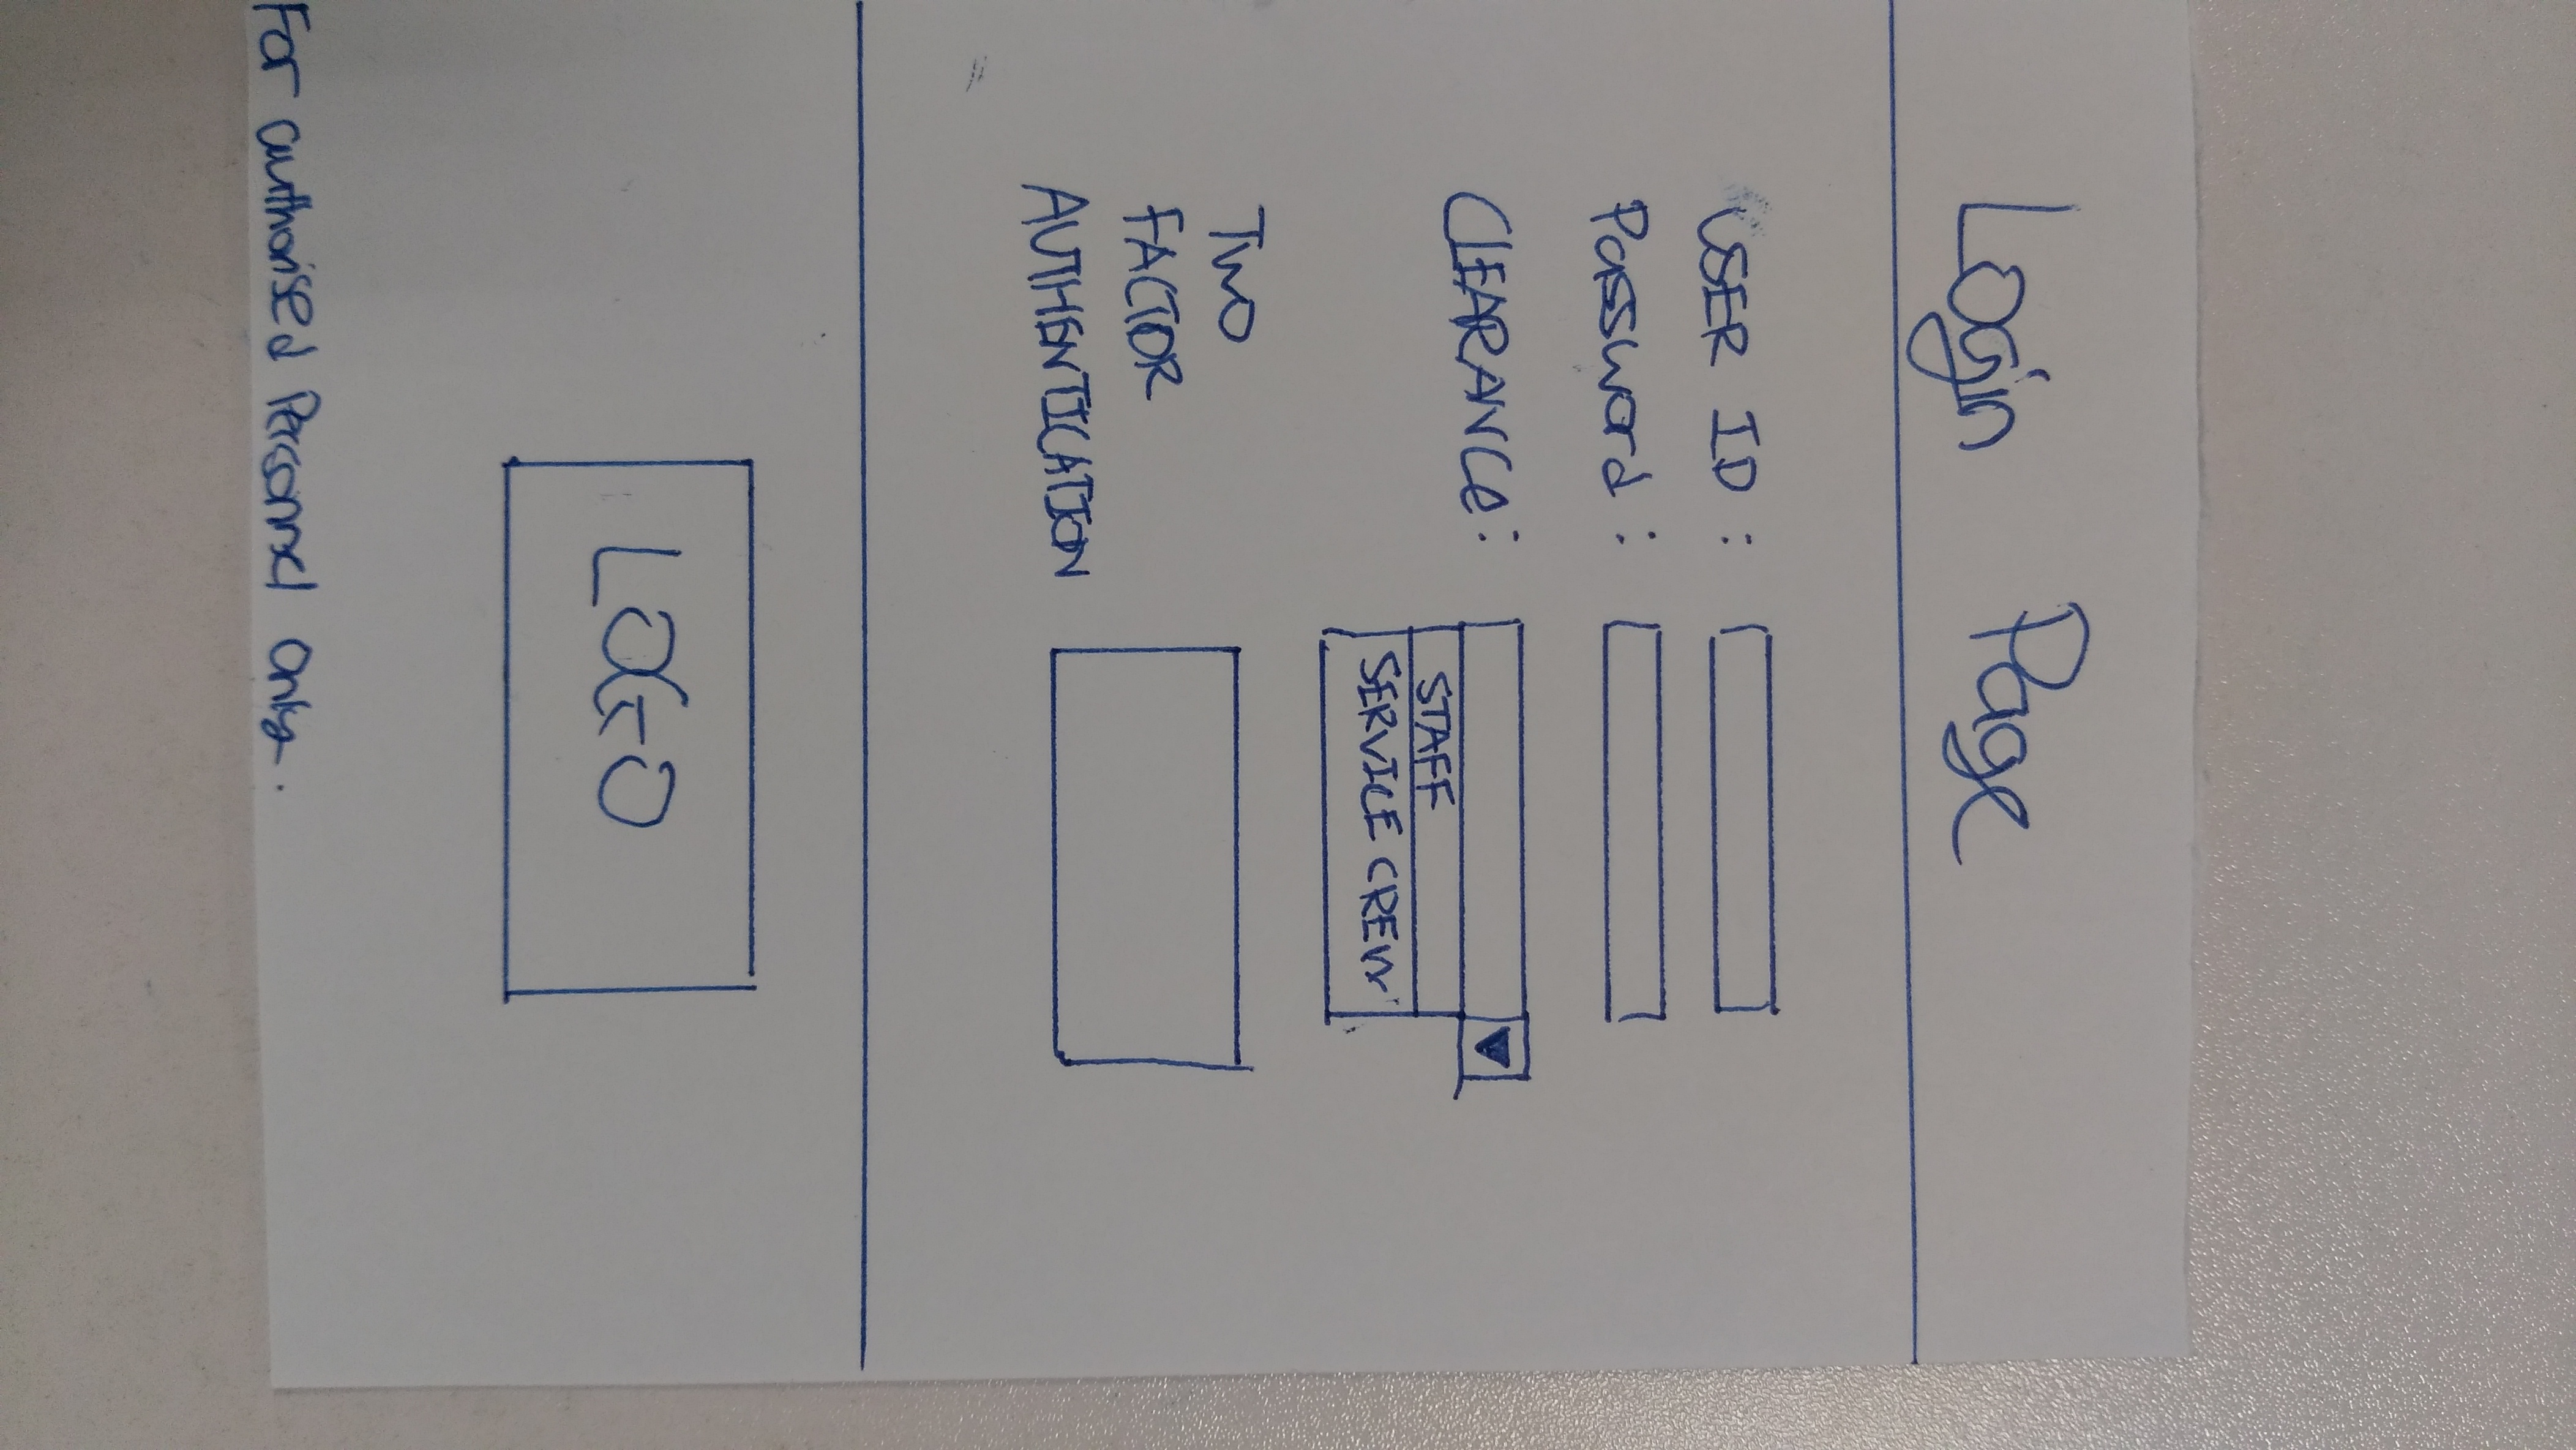 Login Page
USER ID :
Password :
ClEARANCe :
STAFF
SERVICE CREW
Two
FACTOR
AUTHENTICATION
LOGO
For authorised Personnel only.